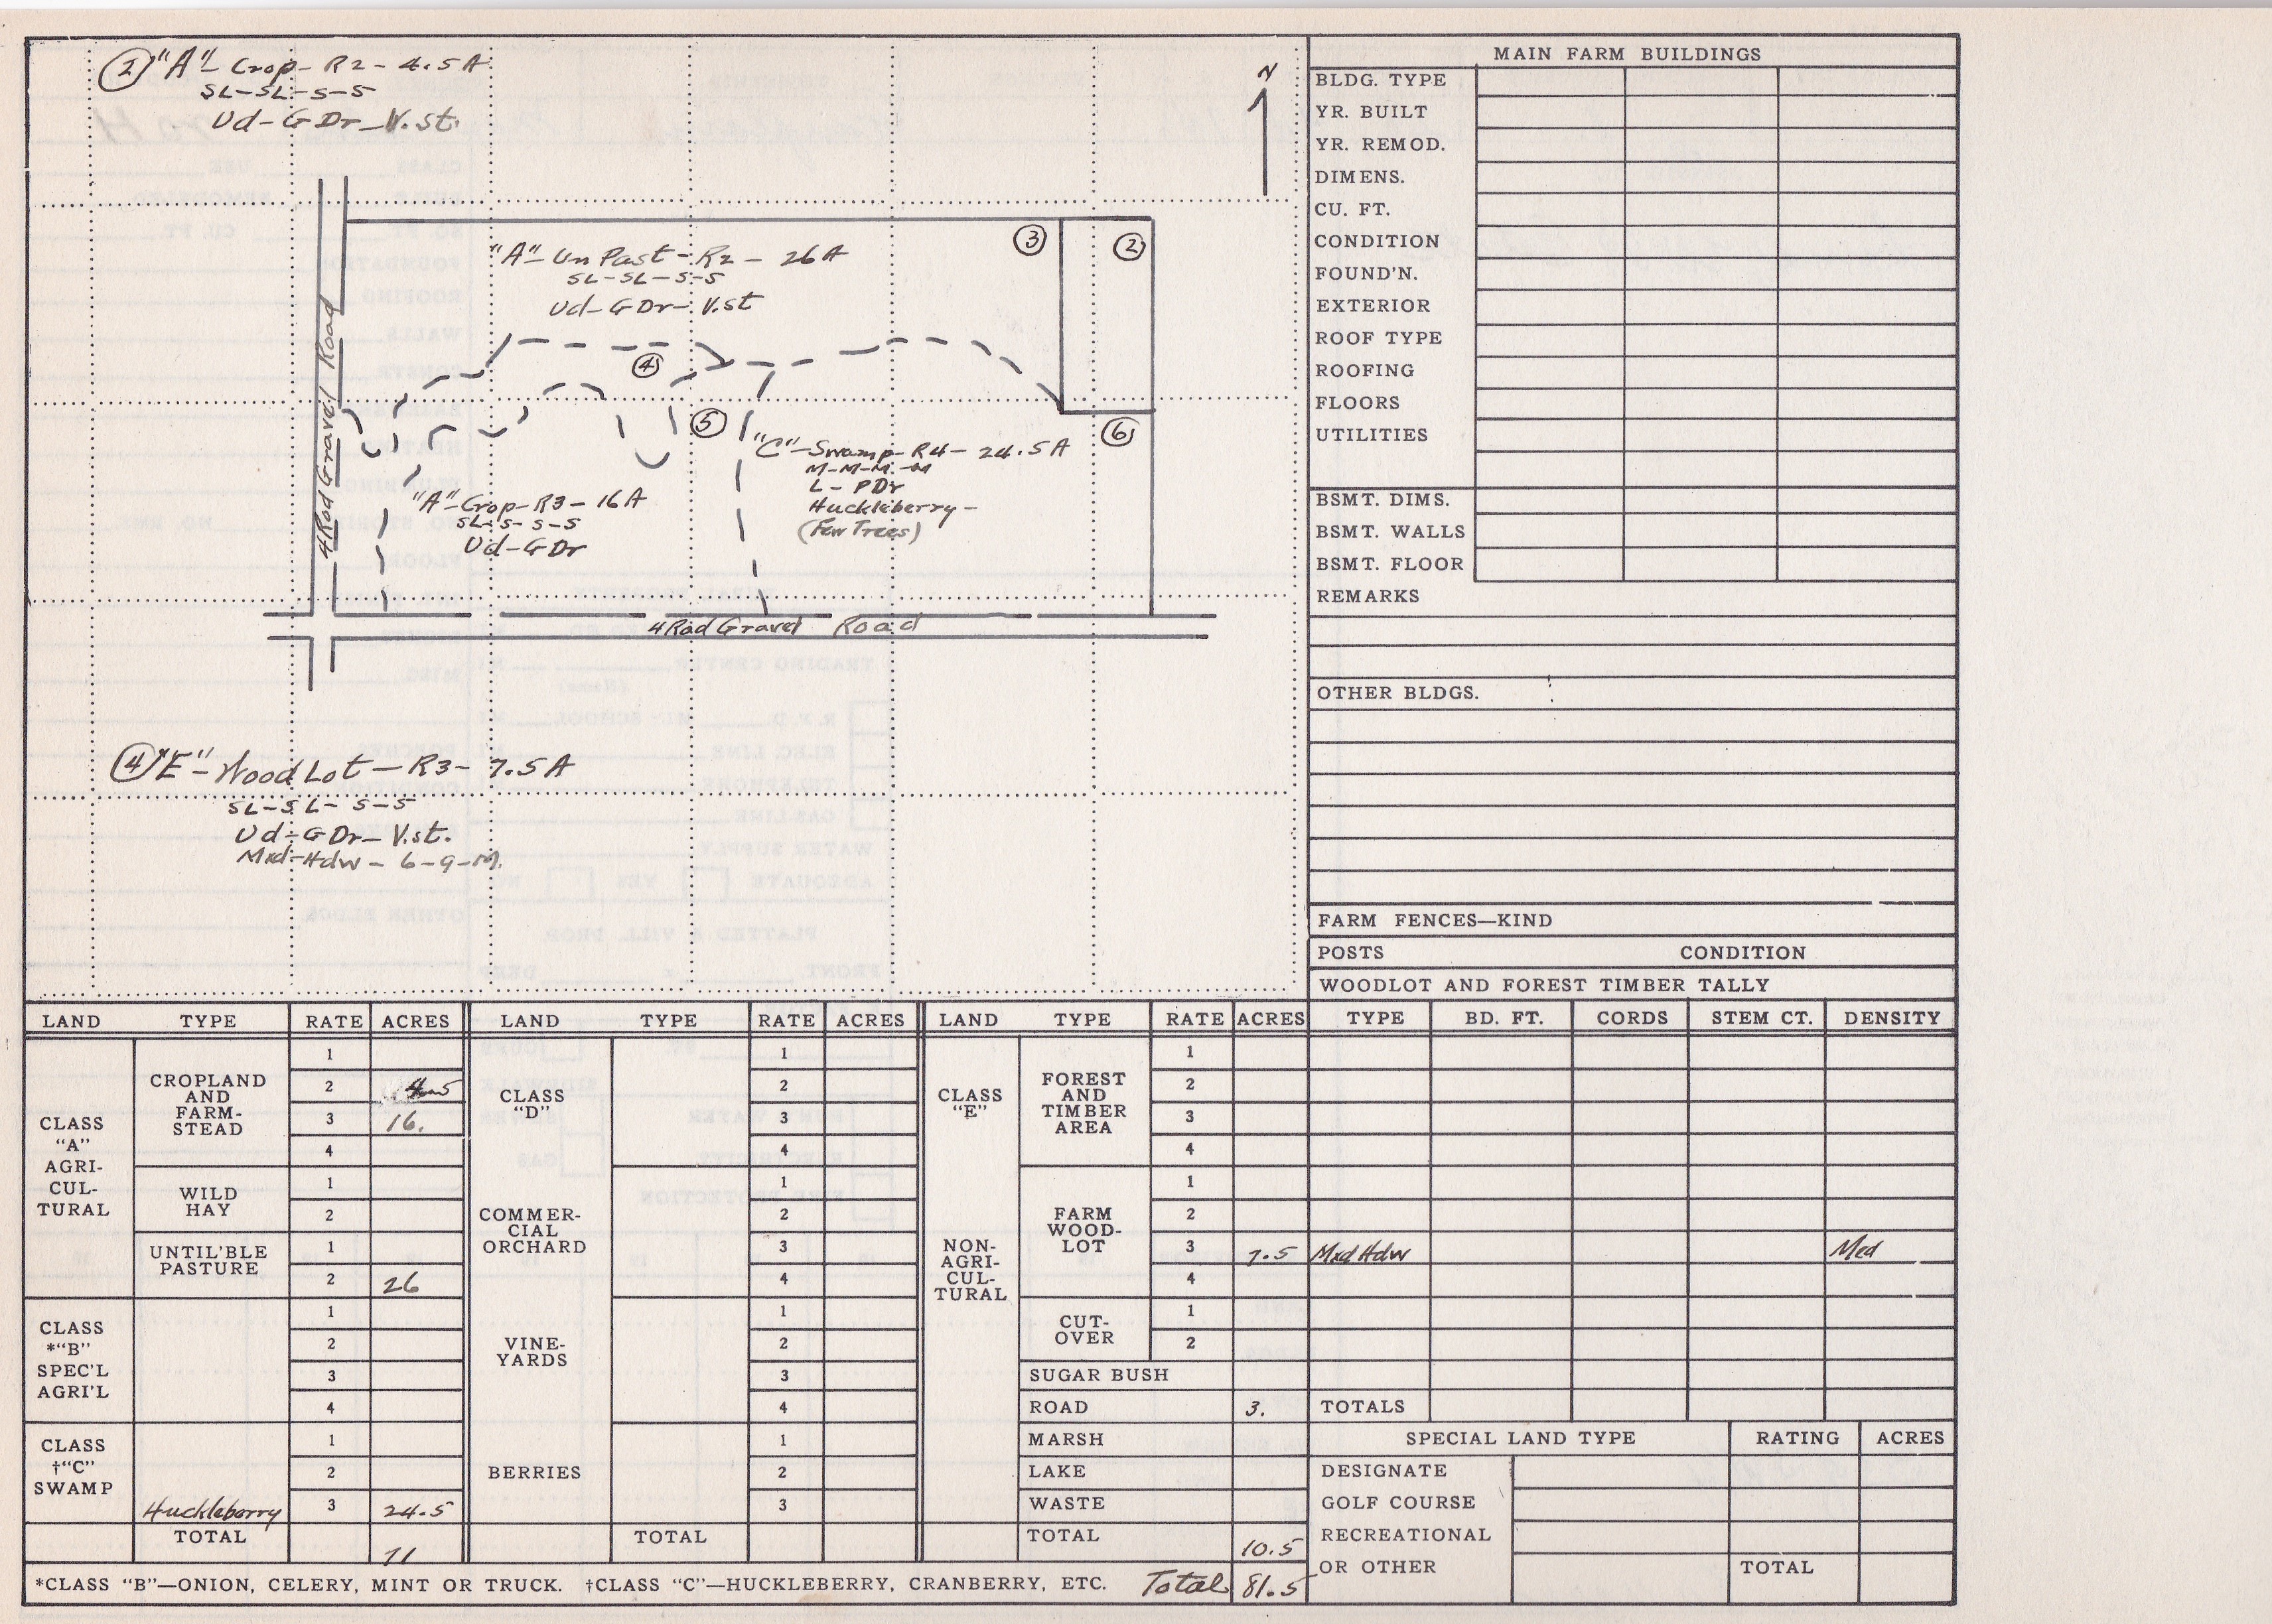 ② "A"- Crop- R2- 4.5 A
SL-SL-S-S
Ud-G Dr-V.st.
N
③
②
"A"- Un Past- R2 - 26 A
SL-SL-S-S
Ud-G Dr- V.st
④
⑤
⑥
4 Rod Gravel Road
"C"-Swamp-R4- 24.5 A
M-M-M-M
L- P Dr
Huckleberry-
(Few Trees)
"A"-Crop-R3-16 A
SL-S-S-S
Ud-G Dr
4 Rod Gravel Road
④ "E"-Wood Lot-R3- 7.5 A
SL-SL-S-S
Ud-G Dr- V.st.
Mxd-Hdw- 6-9-M.
MAIN FARM BUILDINGS
BLDG. TYPE
YR. BUILT
YR. REMOD.
DIMENS.
CU. FT.
CONDITION
FOUND'N.
EXTERIOR
ROOF TYPE
ROOFING
FLOORS
UTILITIES
BSMT. DIMS.
BSMT. WALLS
BSMT. FLOOR
REMARKS
OTHER BLDGS.
FARM FENCES—KIND
POSTS CONDITION
WOODLOT AND FOREST TIMBER TALLY
LAND TYPE RATE ACRES
CLASS
"A"
AGRI-
CUL-
TURAL
CROPLAND
AND
FARM-
STEAD
1
2 4.5
3 16.
4
WILD
HAY
1
2
UNTIL'BLE
PASTURE
1
2 26
CLASS
*"B"
SPEC'L
AGRI'L
1
2
3
4
CLASS
†"C"
SWAMP
1
2
Huckleberry 3 24.5
TOTAL 71
LAND TYPE RATE ACRES
CLASS
"D"
1
2
3
4
COMMER-
CIAL
ORCHARD
1
2
3
4
VINE-
YARDS
1
2
3
4
BERRIES
1
2
3
TOTAL
LAND TYPE RATE ACRES
CLASS
"E"
NON-
AGRI-
CUL-
TURAL
FOREST
AND
TIMBER
AREA
1
2
3
4
FARM
WOOD-
LOT
1
2
3 7.5
4
CUT-
OVER
1
2
SUGAR BUSH
ROAD 3.
MARSH
LAKE
WASTE
TOTAL 10.5
TYPE BD. FT. CORDS STEM CT. DENSITY
Mxd Hdw Med
TOTALS
SPECIAL LAND TYPE RATING ACRES
DESIGNATE
GOLF COURSE
RECREATIONAL
OR OTHER TOTAL
*CLASS "B"—ONION, CELERY, MINT OR TRUCK. †CLASS "C"—HUCKLEBERRY, CRANBERRY, ETC. Total 81.5